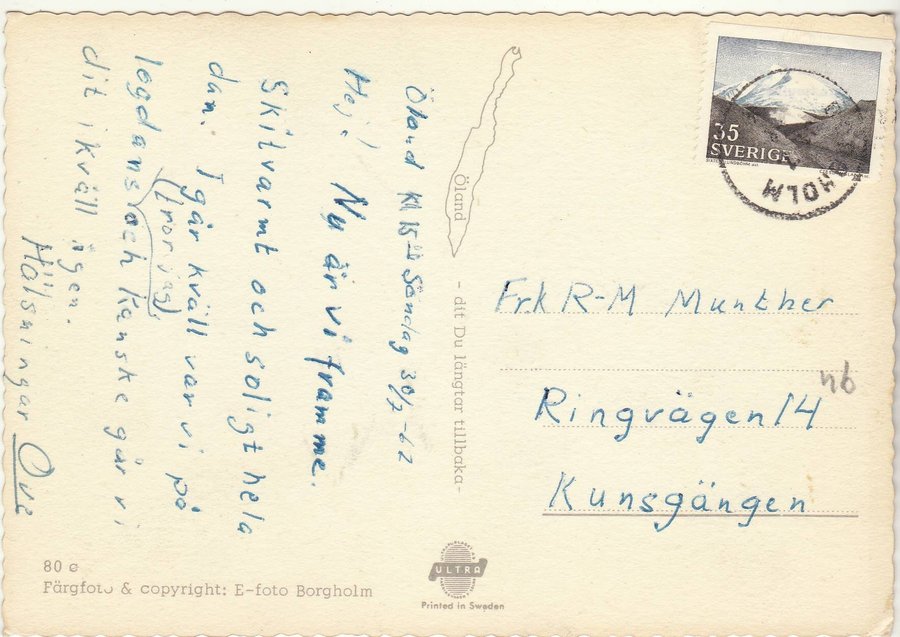 Öland kl 15⁰⁰ Söndag 30/7-67
Hej! Nu är vi framme.
Skitvarmt och soligt hela
dan. Igår kväll var vi på
(tror jag)
logdans och kanske går vi
dit ikväll igen.
Hälsningar Ove
Öland
- dit Du längtar tillbaka -
35
SVERIGE
HOLM
Frk R-M Munther
Ringvägen 14
nb
Kunsgängen
80 ø
Färgfoto & copyright: E-foto Borgholm
ULTRA
Printed in Sweden